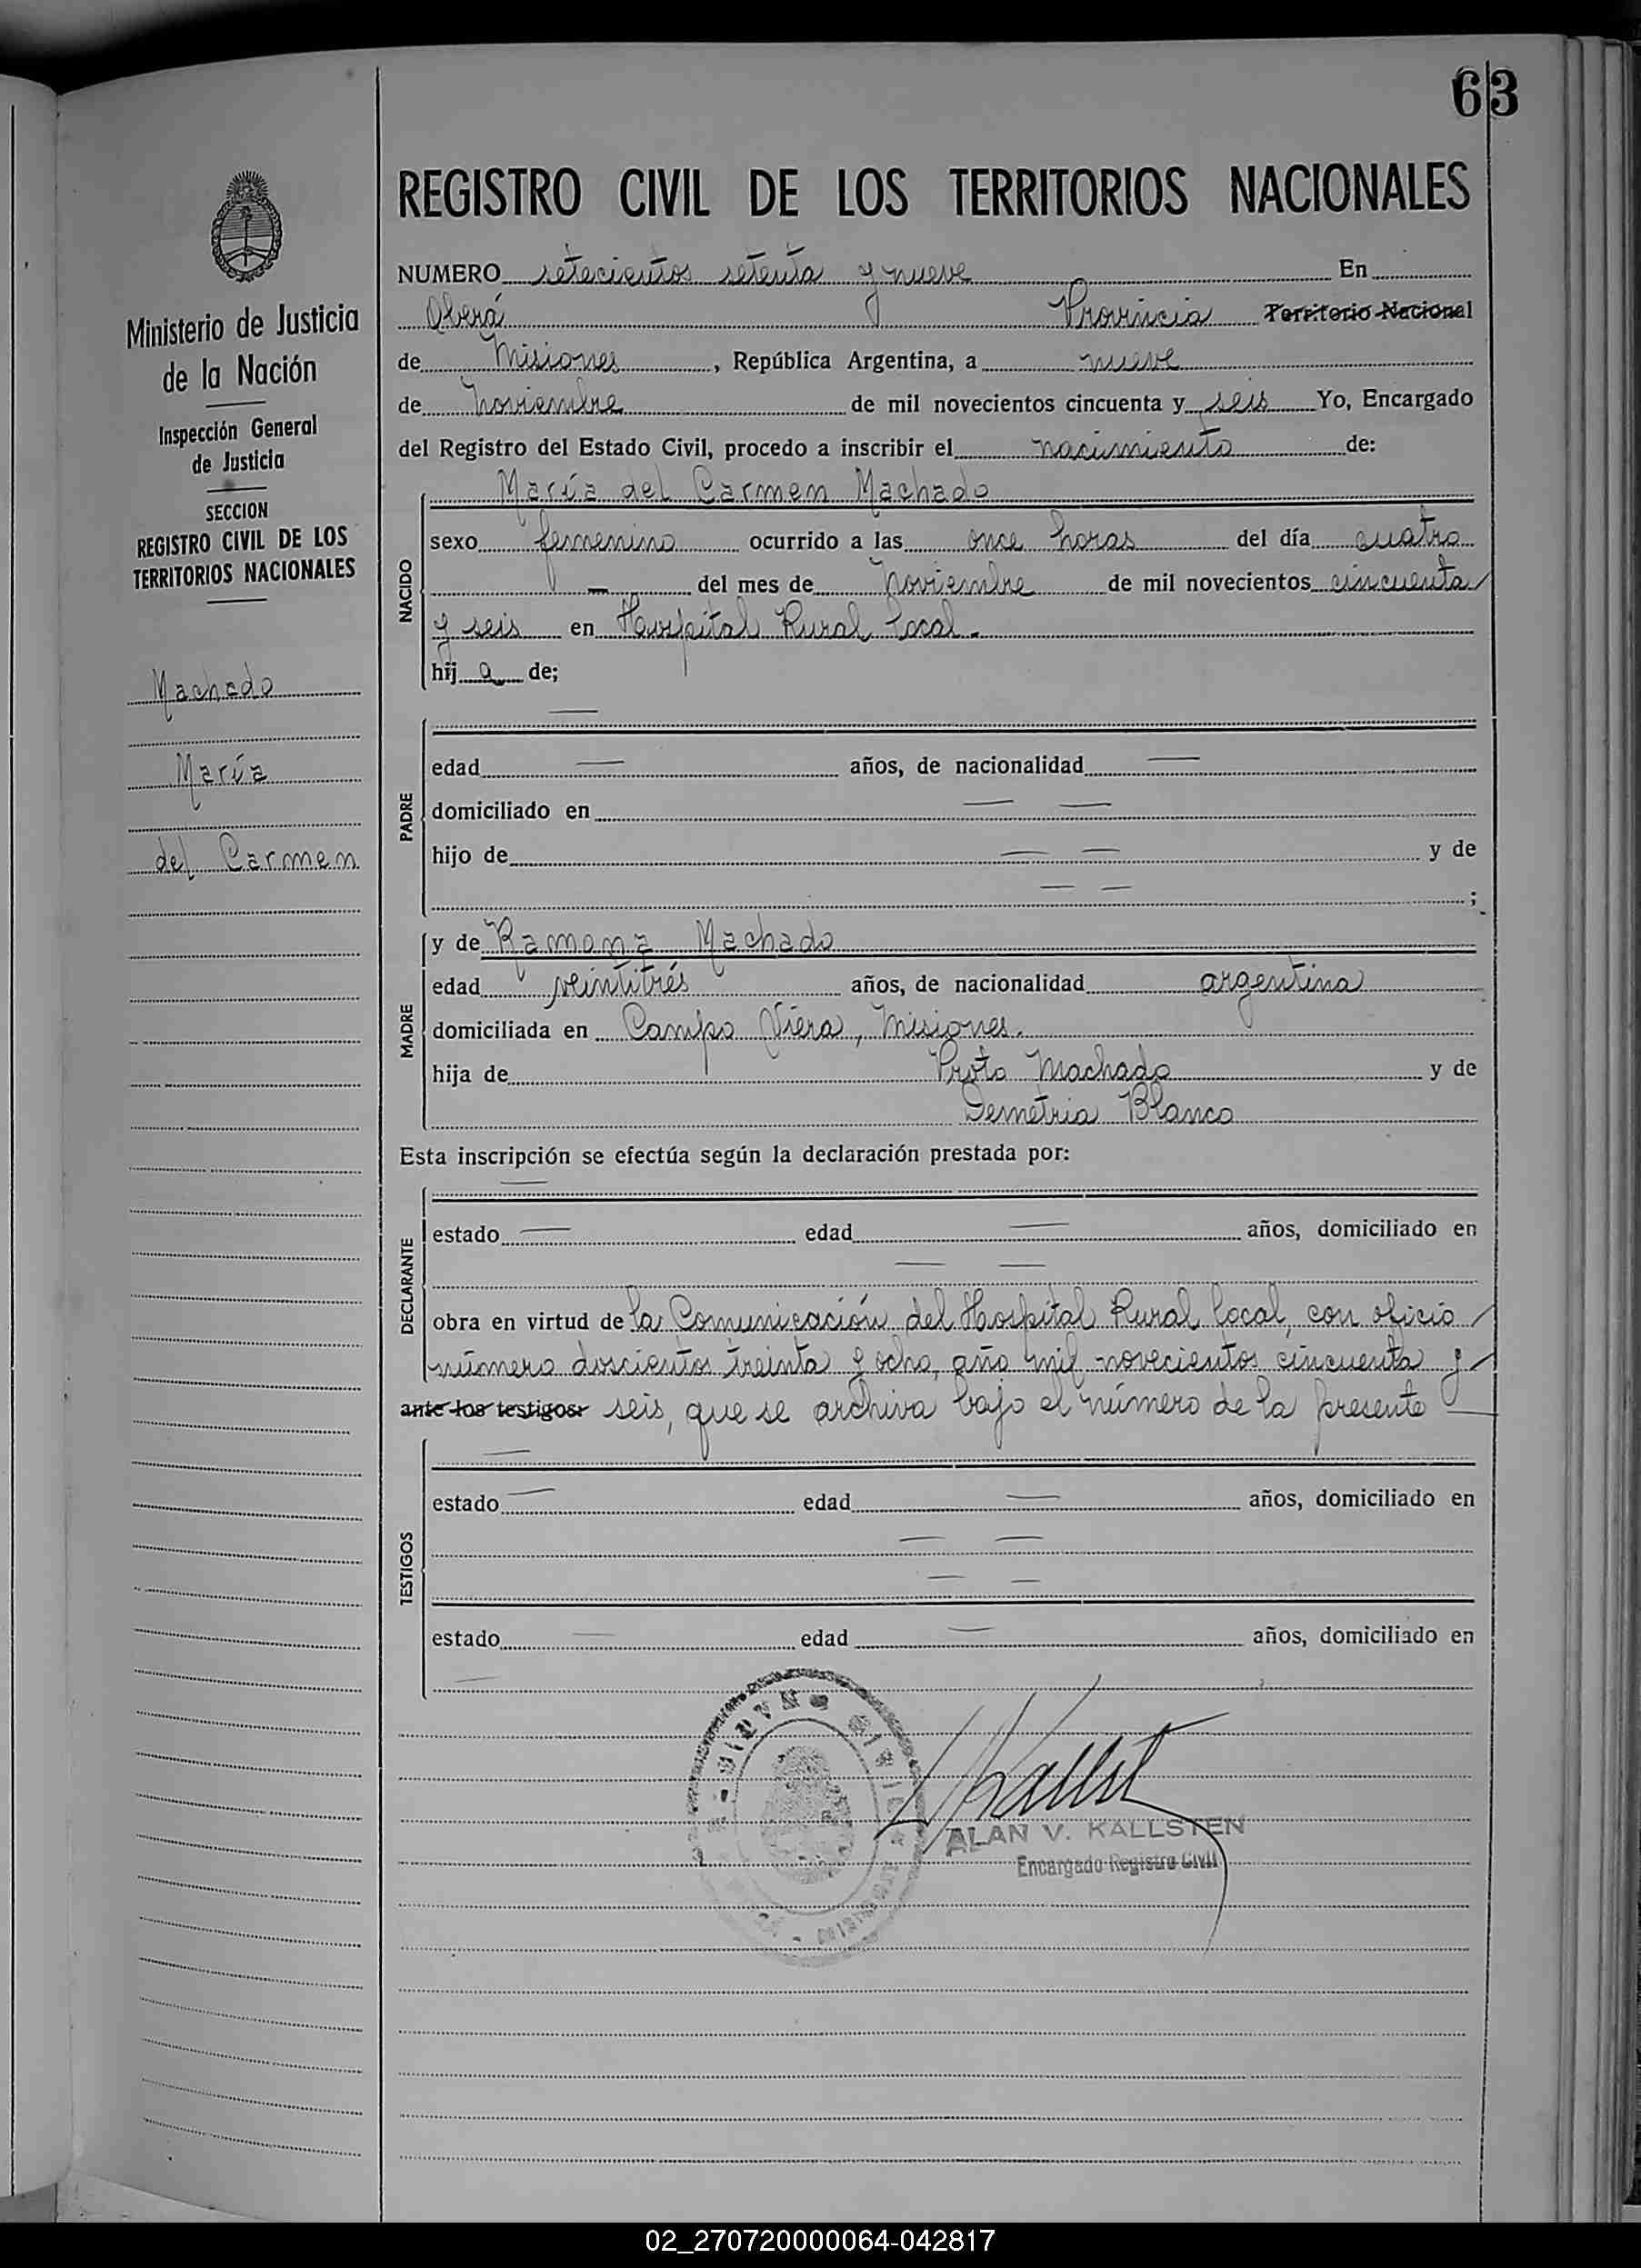 63
REGISTRO CIVIL DE LOS TERRITORIOS NACIONALES
Ministerio de Justicia
de la Nación
Inspección General
de Justicia
SECCION
REGISTRO CIVIL DE LOS
TERRITORIOS NACIONALES
Machado
María
del Carmen
NUMERO setecientos setenta y nueve En
Oberá Provincia Territorio Nacional
de Misiones, República Argentina, a nueve
de Noviembre de mil novecientos cincuenta y seis Yo, Encargado
del Registro del Estado Civil, procedo a inscribir el nacimiento de:
María del Carmen Machado
NACIDO
sexo femenino ocurrido a las once horas del día cuatro
— del mes de Noviembre de mil novecientos cincuenta
y seis en Hospital Rural local.
hij a de;
PADRE
edad — años, de nacionalidad —
domiciliado en — —
hijo de — — y de
— — ;
MADRE
y de Ramona Machado
edad veintitrés años, de nacionalidad argentina
domiciliada en Campo Viera, Misiones.
hija de Proto Machado y de
Demetria Blanco
Esta inscripción se efectúa según la declaración prestada por:
DECLARANTE
estado — edad — años, domiciliado en
— —
obra en virtud de la Comunicación del Hospital Rural local, con oficio
número doscientos treinta y ocho, año mil novecientos cincuenta y
ante los testigos: seis, que se archiva bajo el número de la presente
TESTIGOS
estado — edad — años, domiciliado en
— —
— —
estado — edad — años, domiciliado en
—
ALAN V. KALLSTEN
Encargado Registro Civil
02_270720000064-042817